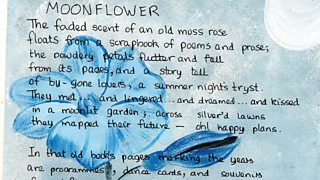 MOONFLOWER
The faded scent of an old moss rose
floats from a scrapbook of poems and prose;
the powdery petals flutter and fall
from its pages, and a story tell
of by-gone lovers, a summer nights tryst.
They met... and lingered... and dreamed... and kissed
in a moonlit garden; across silver'd lawns
they mapped their future — oh! happy plans.
In that old books pages marking the years
are programmes, dance cards, and souvenirs